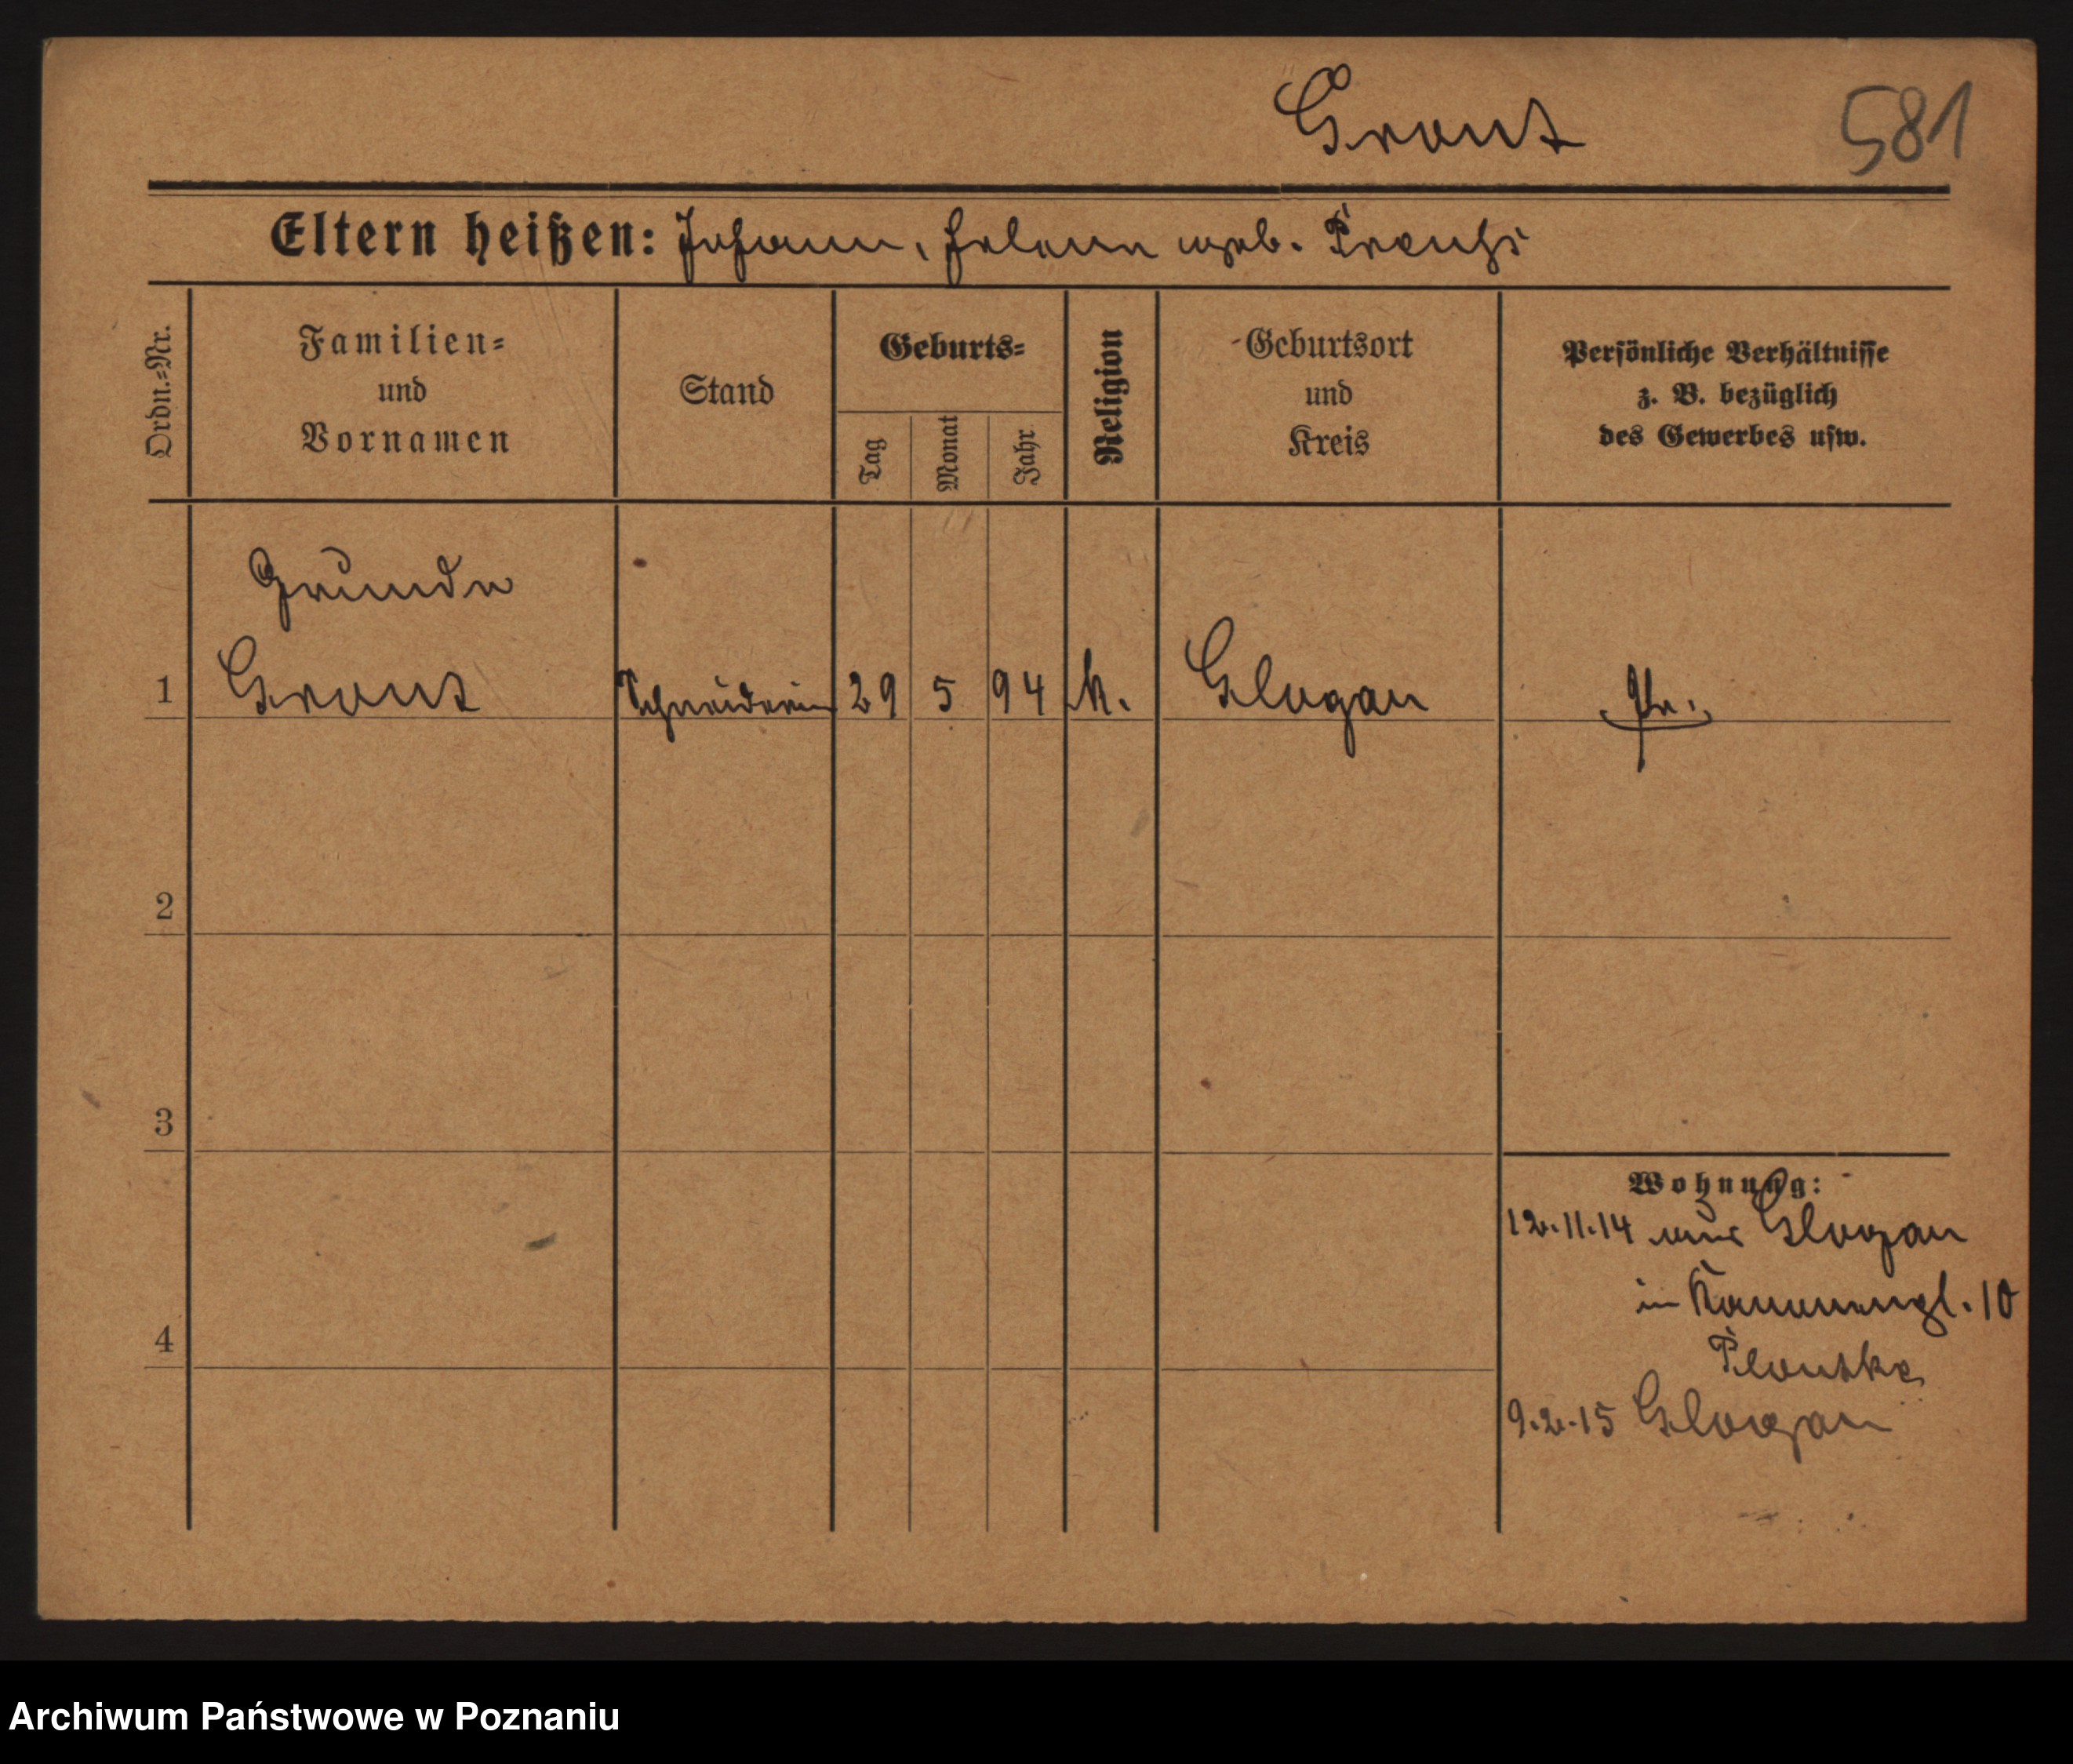 Grant
581
Eltern heißen: Johann, Helene geb. Preuß
Ordn.=Nr.
Familien=
und
Vornamen
Stand
Geburts=
Tag
Monat
Jahr
Religion
Geburtsort
und
Kreis
Persönliche Verhältnisse
z. B. bezüglich
des Gewerbes usw.
1
Schneiderin 29 5 94 k. Glogau Pr.
2
3
4
Wohnung:
12.11.14 aus Glogau
in 10
9.2.15 Glogau
Archiwum Państwowe w Poznaniu